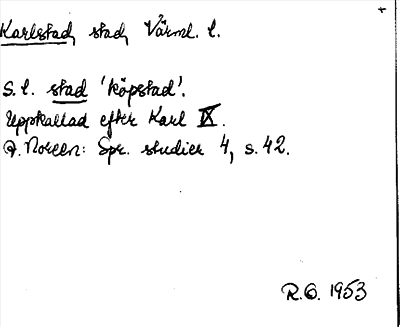 Karlstad, stad, Värml. l.
S. l. stad 'köpstad'.
Uppkallad efter Karl IX.
A. Noreen: Spr. studier 4, s. 42.
R.O. 1953